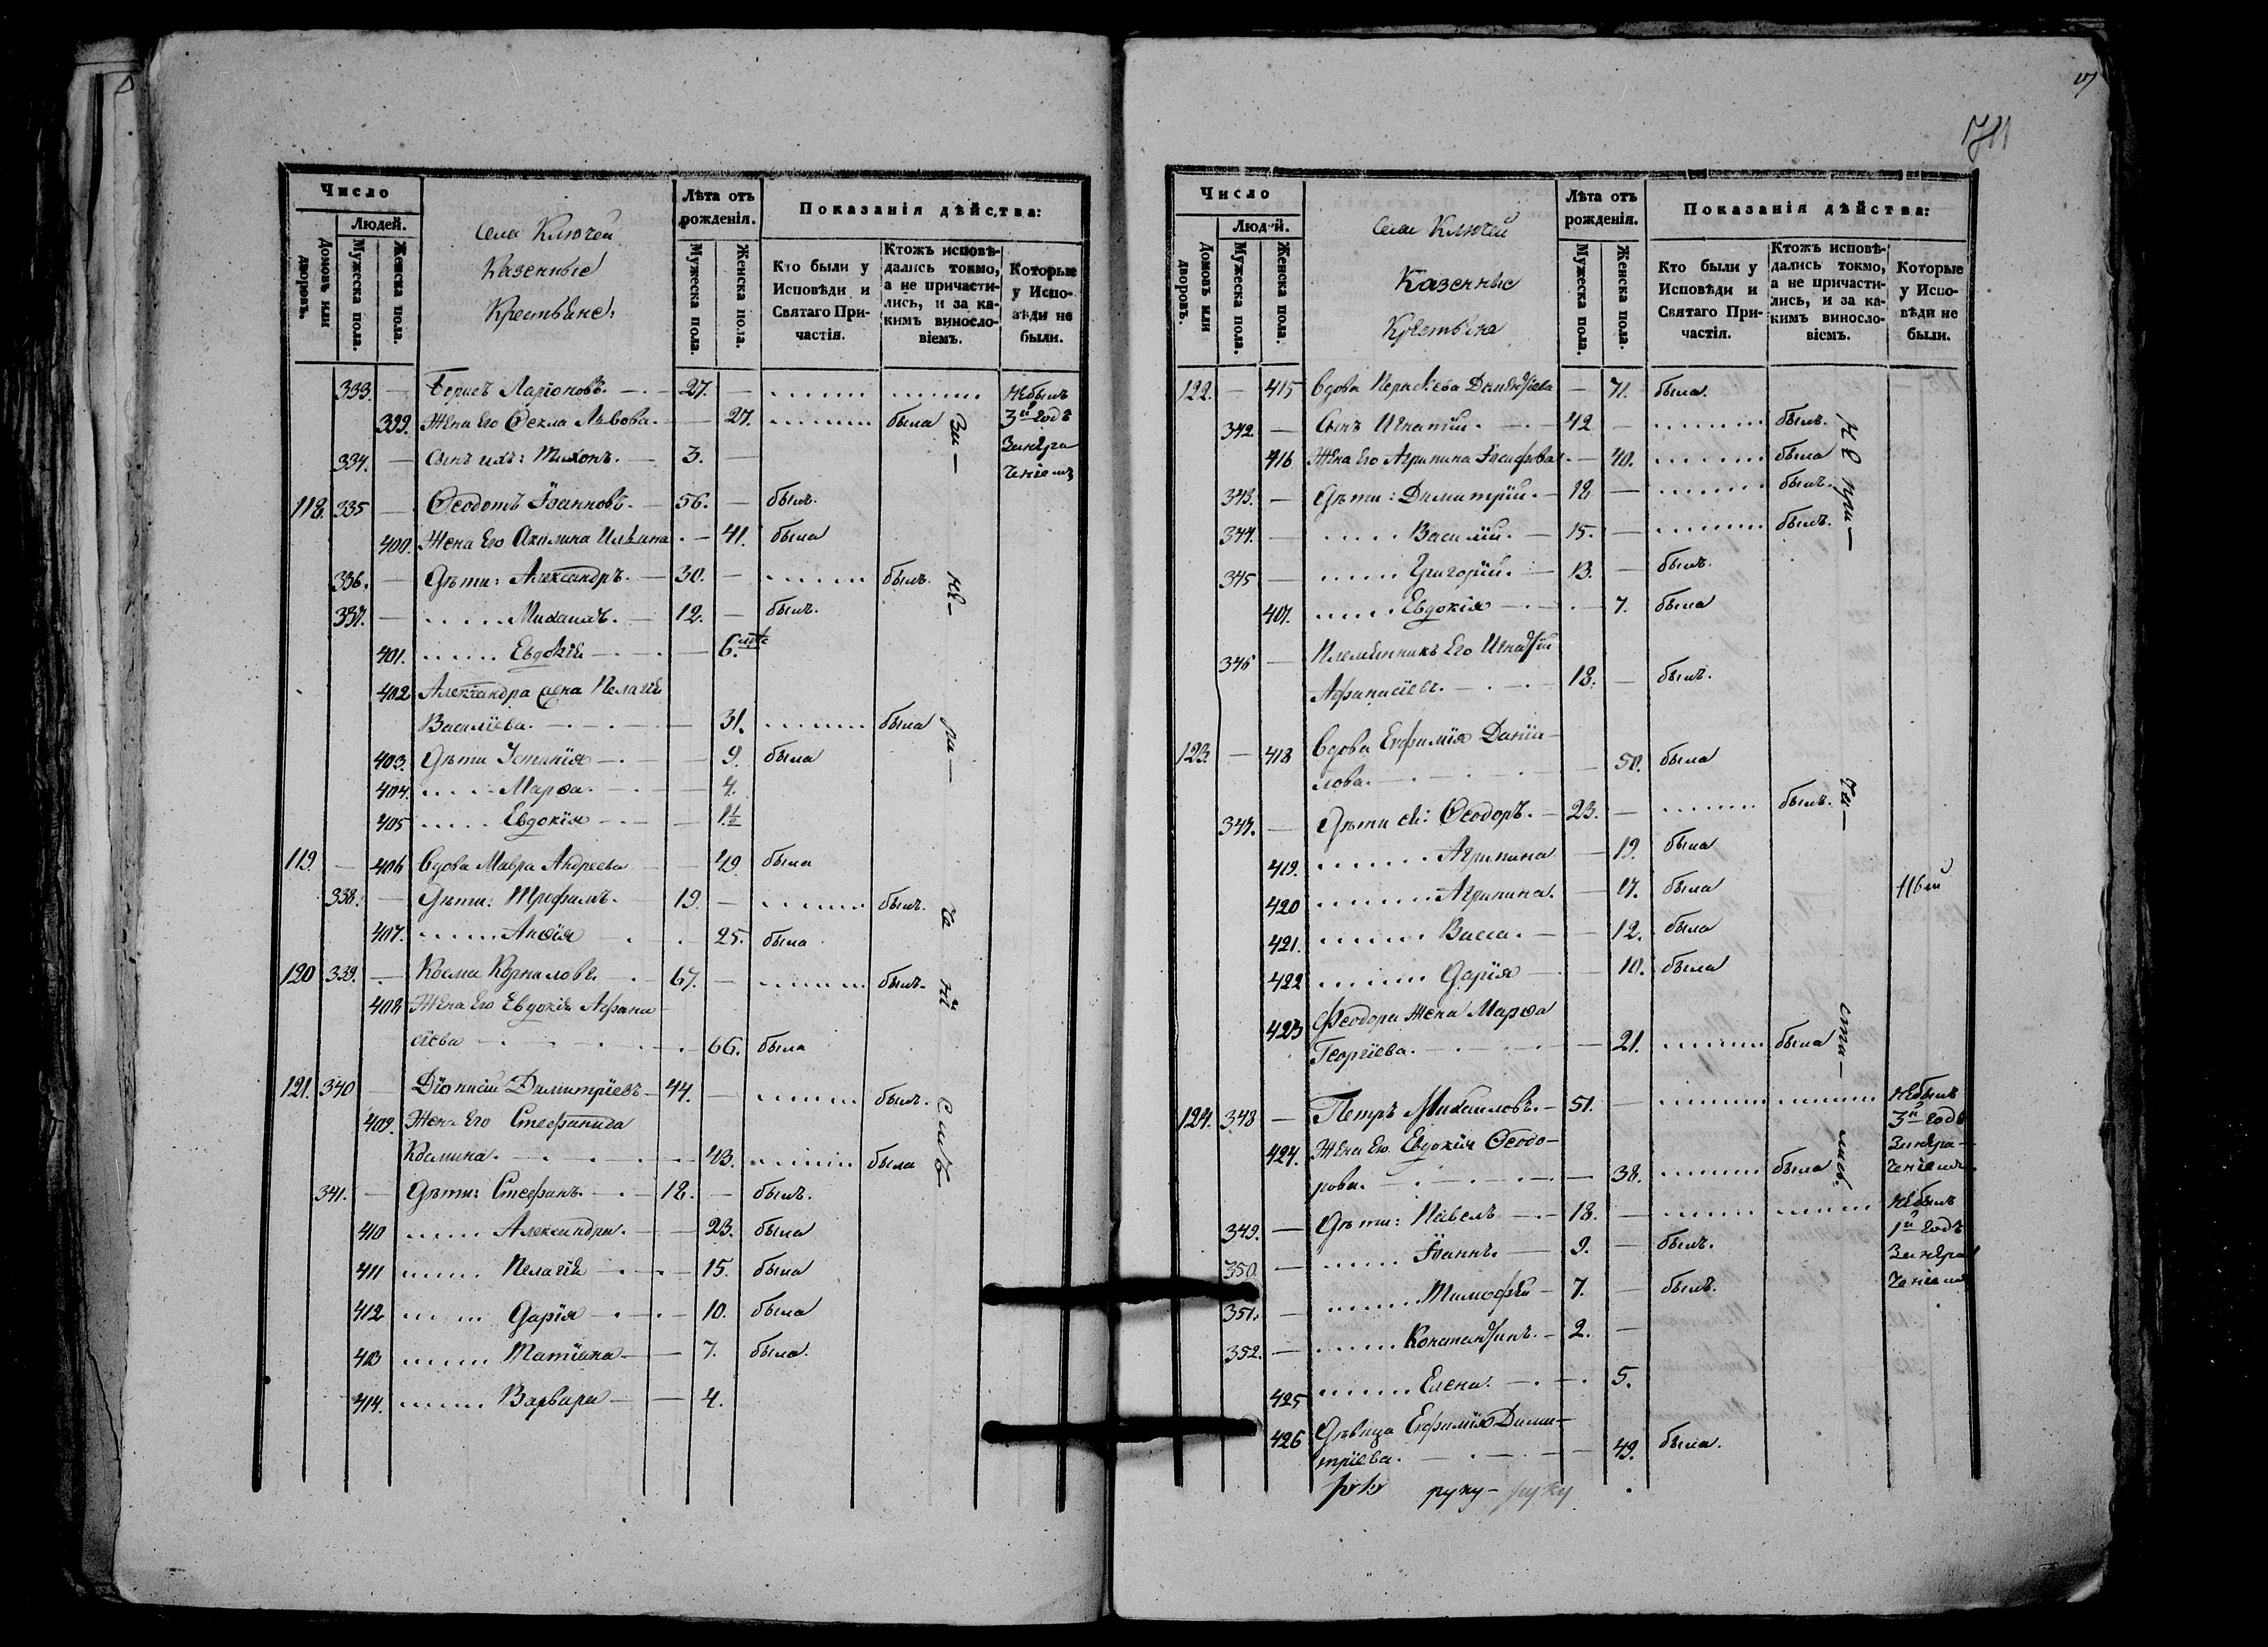 Число
Людей.
Домовъ или дворовъ.
Мужеска пола.
Женска пола.
Села Ключей
Казенные
Крестьяне:
Лѣта отъ рожденія.
Мужеска пола.
Женска пола.
Показанія дѣйства:
Кто были у Исповѣди и Святаго Причастія.
Ктожъ исповѣдались токмо, а не причастились, и за какимъ винословіемъ.
Которые у Исповѣди не были.
333. — Борисъ Ларіоновъ. — 27. — Небылъ
399. Жена Его Ѳекла Львова. — 27. была 3й годъ
Занера
334. — Сынъ ихъ: Тихонъ. — 3. — ченіемъ
118. 335 — Ѳеодотъ Іоанновъ. — 56. — былъ.
400. Жена Его Акилина Ильина — 41. была
336. — Дѣти: Александръ. — 30. — былъ.
337. — Михаилъ. — 12. — былъ.
401. Евдокія — 6.
402 Александра жена Пелагія
Василіева. — 31. была
403. Дѣти Устинія — 9. была
404. Марѳа. — 4.
405 Евдокія — 1½
119. — 406 Вдова Мавра Андреева — 49. была
338. — Дѣти: Трофимъ. 19. — былъ.
407. Анѳія 25. была
120 339. — Косма Корниловъ. 67. — былъ.
408 Жена Его Евдокія Афана-
сіева — 66. была
121. 340 — Діонисій Димитріевъ — 44. — былъ.
409. Жена Его Стефанида
Космина. — 43. была
341. — Дѣти: Стефанъ. — 12. — былъ.
410 Александра. — 23. была
411 Пелагія — 15. была
412 Дарія — 10. была
413 Татіана — 7. была.
414. Варвара — 4.
Число
Людей.
Домовъ или дворовъ.
Мужеска пола.
Женска пола.
Села Ключей
Казенные
Крестьяне
Лѣта отъ рожденія.
Мужеска пола.
Женска пола.
Показанія дѣйства:
Кто были у Исповѣди и Святаго Причастія.
Ктожъ исповѣдались токмо, а не причастились, и за какимъ винословіемъ.
Которые у Исповѣди не были.
122. — 415 Вдова — 71. была.
342. — Сынъ Игнатій. — 42 — былъ.
416 Жена Его Агрипина Іосифова. — 40. была
343. — Дѣти: Димитрій. — 18 — былъ.
344. — Василій. — 15. — былъ.
345 — Григорій. — 13. — былъ.
407. Евдокія — 7. была
346 — Племянникъ Его Игнатій
Афанасіевъ. — 18. — былъ.
123. — 418 Вдова Евфимія Даніи-
лова. — 50. была
347. — Дѣти ея: Ѳеодоръ. — 23. — былъ.
419. Агрипина — 19. была
420 Агрипина. — 17. была
421. Васса. — 12. была
422 Дарія — 10. была
423 Ѳеодора жена Марѳа
Георгіева. — 21. была
124. 348 — Петръ Михаиловъ. — 51. — Небылъ
3й годъ
424. Жена Его Евдокія Ѳеодо- Занера-
рова. — 38. была ченіемъ
349. — Дѣти: Павелъ — 18. — Небылъ
1й годъ
350. — Іоаннъ. — 9. — былъ. Занера
351. — Тимофей — 7. — былъ. ченіемъ
352. — Константинъ. — 2. —
425 Елена. — 5.
426 Дѣвица Евфимія Дими-
тріева. — 49. была.
руку-руку